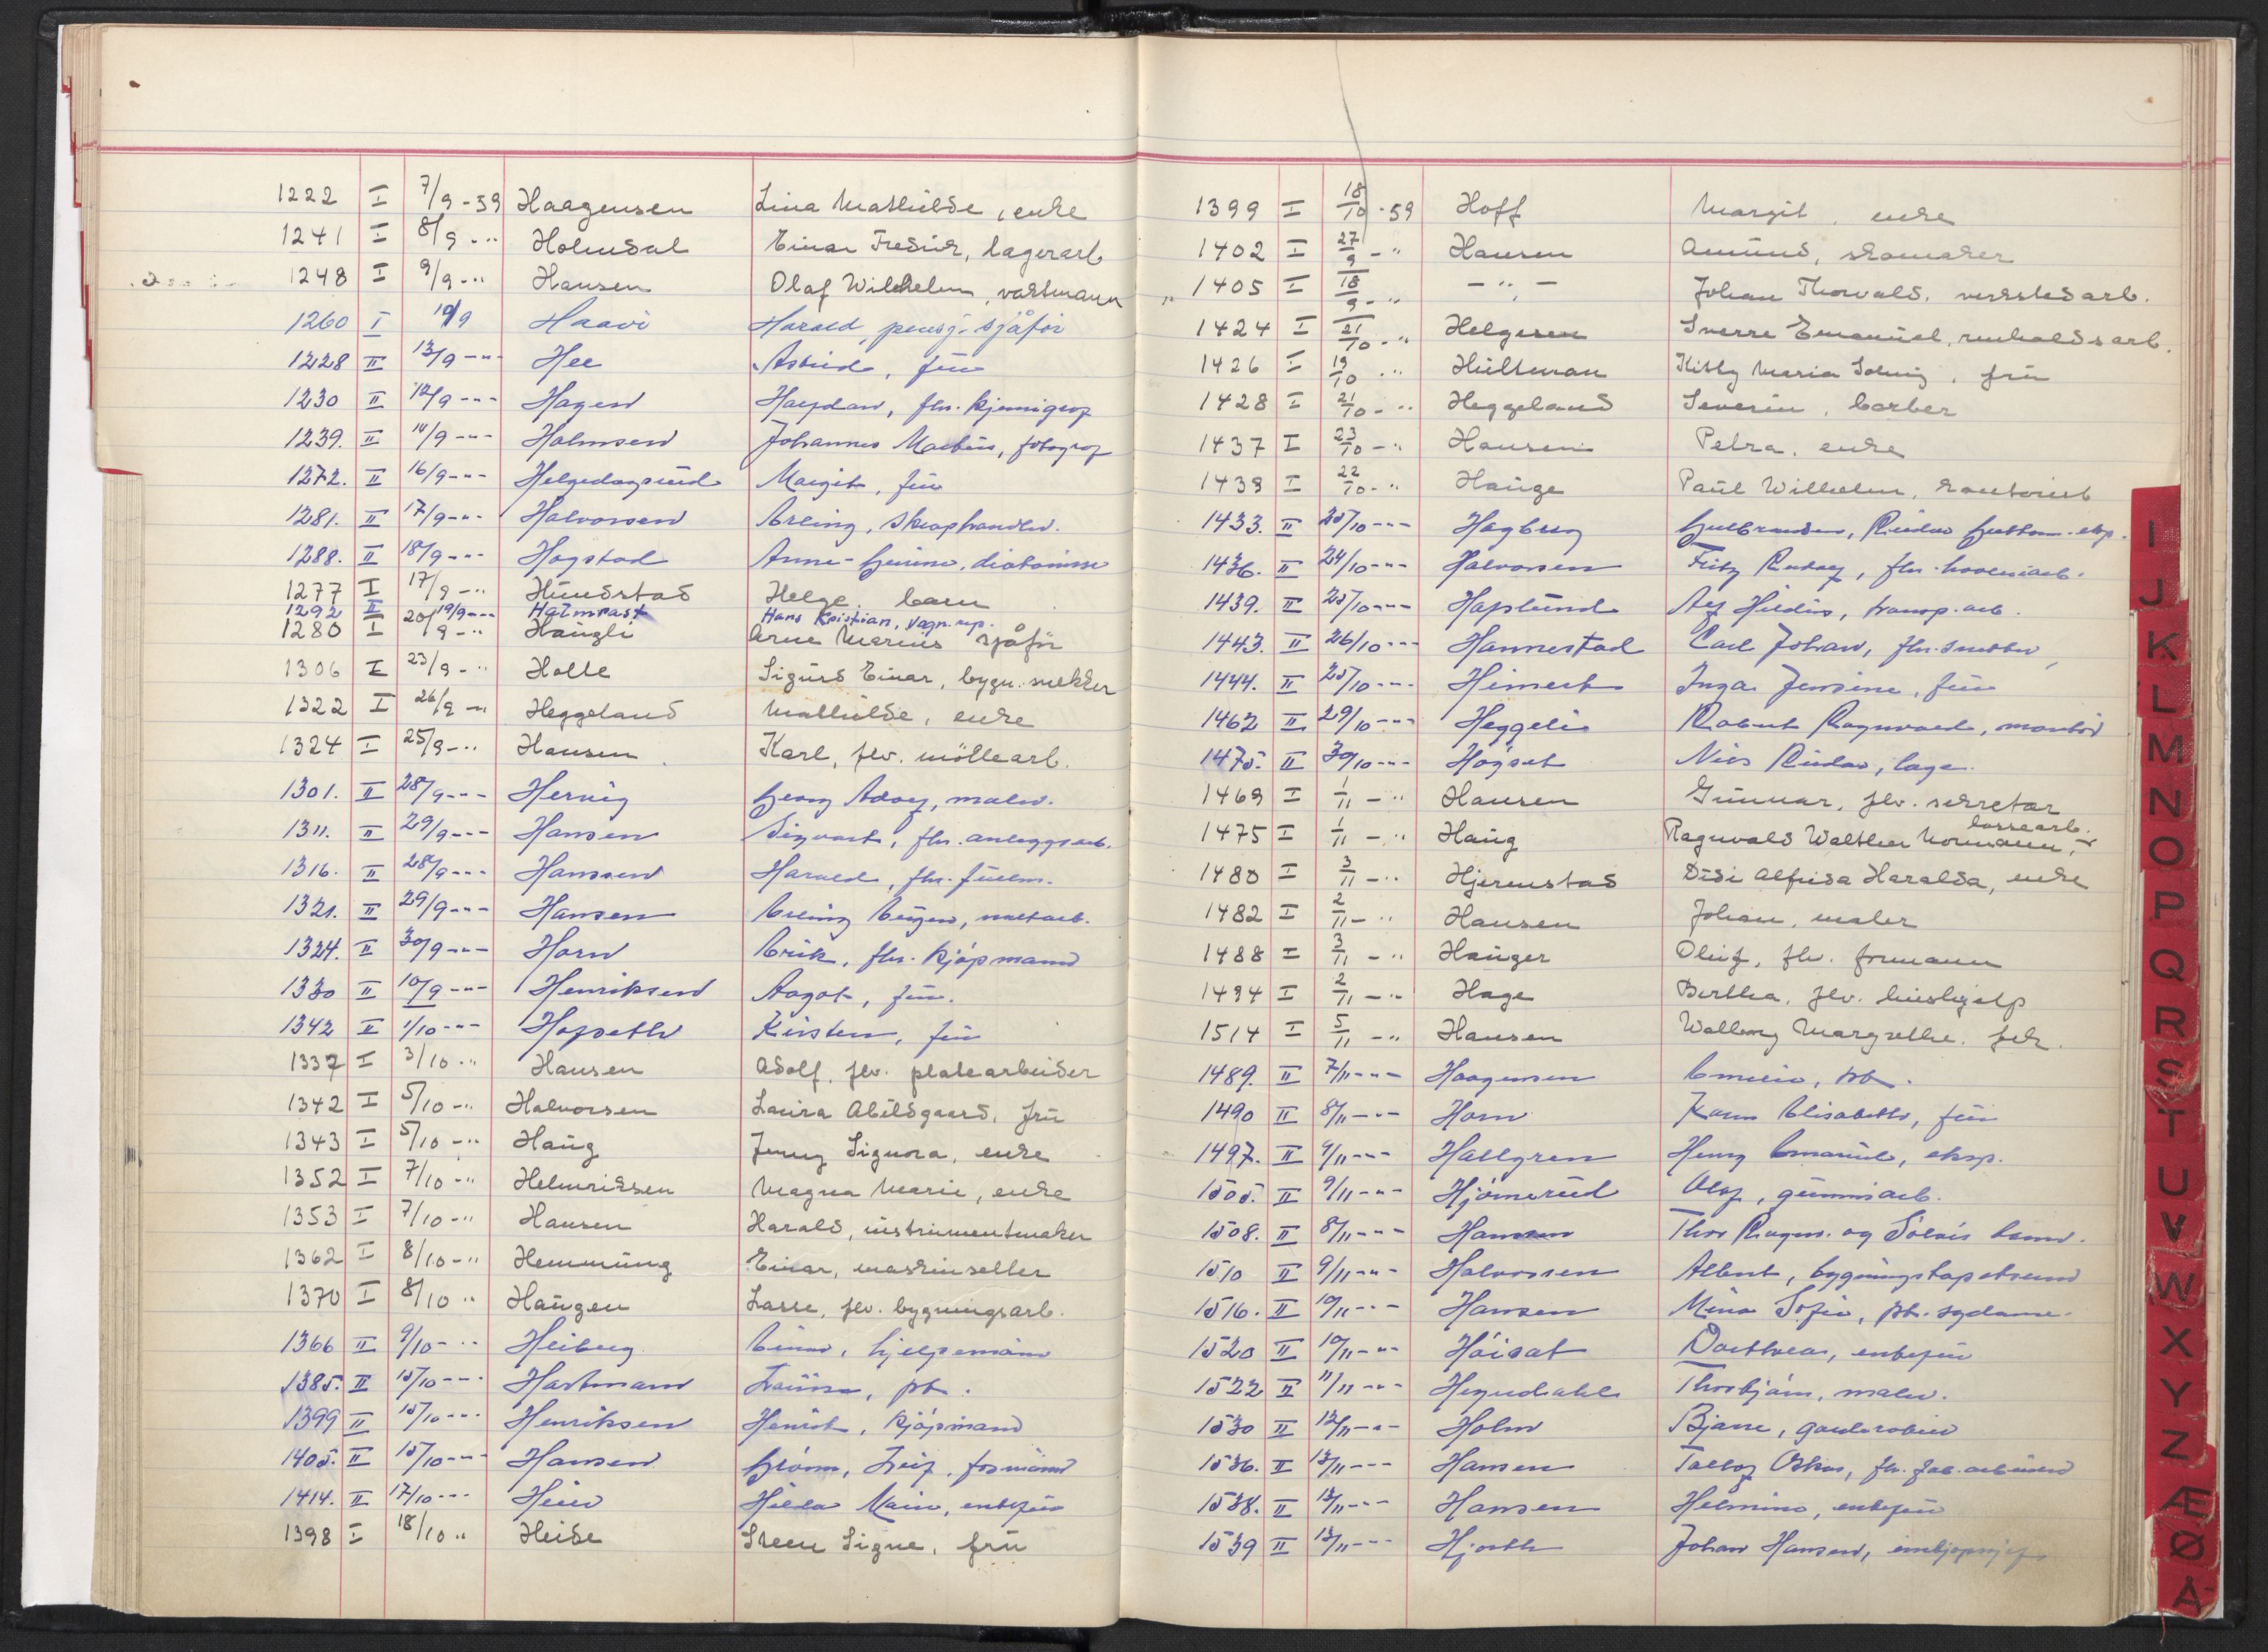 1222 I 7/9-59 Haagensen Lina Mathilde, enke
1241 I 8/9 -" Holmdal Einar Fredrik, lagerarb
1248 I 9/9 -" Hansen Olaf Wilhelm, vaktmann
1260 I 10/9 Haavi Harald, pensj. sjåfør
1228 II 13/9 -"- Hee Astrid, frü
1230 II 12/9 -"- Hagen Haldan, fhv. kjemigraf
1239. II 14/9 -"- Holmsen Johannes Matheus, fotograf
1272. II 16/9 -"- Helgedagsrud Margit, frü
1281. II 17/9 -"- Halvorsen Erling, skraphandler.
1288. II 18/9 -"- Hogstad Anne-
1277 I 17/9 -" Hündstad Helge, barn
1292 II 19/9 -"- Halmrast Hans Kristian, vogn.rep.
1280 I 20/9 -" Haugli Arne Marius sjåfør
1306 I 23/9 -" Holle Sigürd Einar, bygn. snekker
1322 I 26/9 -" Heggeland Mathilde, enke
1324 I 25/9 -" Hansen Karl, fhv. möllearb.
1301. II 28/9 -"- Hervig Georg Adolf, maler.
1311. II 29/9 -"- Hansen Sigvart, fhv. anleggsarb.
1316. II 28/9 -"- Hanssen Harald, fhv. fullm.
1321. II 29/9 -"- Hansen Erling Eugen, matarb.
1324. II 30/9 -"- Horn Erik, fhv. kjøpmann
1330 II 10/9 -"- Henriksen Aagot, frü.
1342 II 1/10 -"- Hopseth Kirsten, frü
1337 I 3/10 -" Hansen Adolf, fhv. platearbeider
1342 I 5/10 -" Halvorsen Laura Abildgaard, frü
1343 I 5/10 -" Haüg Jenny Signora, enke
1352 I 7/10 -" Helmriksen Magna Marie, enke
1353 I 7/10 -" Hansen Harald, instrumentmaker
1362 I 8/10 -" Hemmüng Einar, maskinsetter
1370 I 8/10 " Haügen Lasse, fhv. bygningsarb.
1366 II 9/10 -" Heiberg Einar, hjelpemann
1385. II 15/10 -"- Hartmann Laüra, pt.
1399 II 15/10 -"- Henriksen Henrik, kjøpmann
1405. II 15/10 -"- Hansen Grönn, Leif, formann
1414. II 17/10 -"- Hein Hilda Marie, enkefrü
1398 I 18/10 " Heide Steen Signe, frü
1399 I 18/10 -59 Hoff Margit, enke
1402 I 27/9 -" Hansen Amünd, skomaker
" 1405 I 18/9 -" - " - Johan Thorvald, verkstedarb.
1424 I 21/10 -" Helgesen Sverre Emanüel, renholdsarb.
1426 I 19/10 -" Hültman Kitty Maria Solveig, frü
1428 I 21/10 -" Heggeland Severin, barber
1437 I 23/10 -" Hansen Petra, enke
1439 I 22/10 -" Hauge Paül Wilhelm, kontorist
1433. II 25/10 -"- Hagberg Gulbrandsen,
1436. II 24/10 -"- Halvorsen Fritz Rudolf, fhv. hovleriarb.
1439. II 25/10 -"- Haglund Alf Hilding, transp. arb.
1443. II 26/10 -"- Hannestad Carl Johan, fhv. smed
1444. II 25/10 -"- Heinert Inga Jensine, frü
1462 II 29/10 -"- Heggeli Robert Ragnvald, montör
1475. II 30/10 -"- Høgset Nils Peder, lager.
1469 I 1/11 -" Hansen Günnar, fhv. sekretær
1475 I 1/11 -" Haüg Ragnvald Walther Normann, lossearb.
1480 I 3/11 -" Hjermstad Disi Alfrida Haralda, enke
1482 I 2/11 -" Hansen Johan, maler
1488 I 3/11 -" Haüger Oluf, fhv. formann
1494 I 2/11 -" Hage Bertha, fhv. hüshjelp
1514 I 5/11 -" Hansen Walborg Margrethe, frk.
1489. II 7/11 -"- Haagensen Emilie, pt.
1490 II 8/11 -"- Horn Karen Elisabeth, frü
1497. II 9/11 -"- Hallgren Henry Emanüel, eksp.
1505. II 9/11 -"- Hjömerüd Olaf, gummiarb.
1508. II 8/11 -"- Hansen Thor Ragnv. og Solveis barn.
1510 II 9/11 -"- Halvorsen Albert, bygningstapetserer
1516. II 10/11 -"- Hansen Mina Sofie, pt. sydame.
1520 II 10/11 -"- Höisat Dorthea, enkefrü
1522 II 11/11 -"- Hegndahl Thorbjörn, maler.
1530 II 12/11 -"- Holm Bjarne, garderobier
1536. II 13/11 -"- Hansen Tollef Oskar, fhv. fab.arbeider
1538. II 13/11 -"- Hansen Helmine, enkefrü
1539 II 13/11 -"- Hjorth Johan Hansen, innkjøpssjef
I
J
K
L
M
N
O
P
Q
R
S
T
U
V
W
X
Y
Z
Æ
Ø
Å